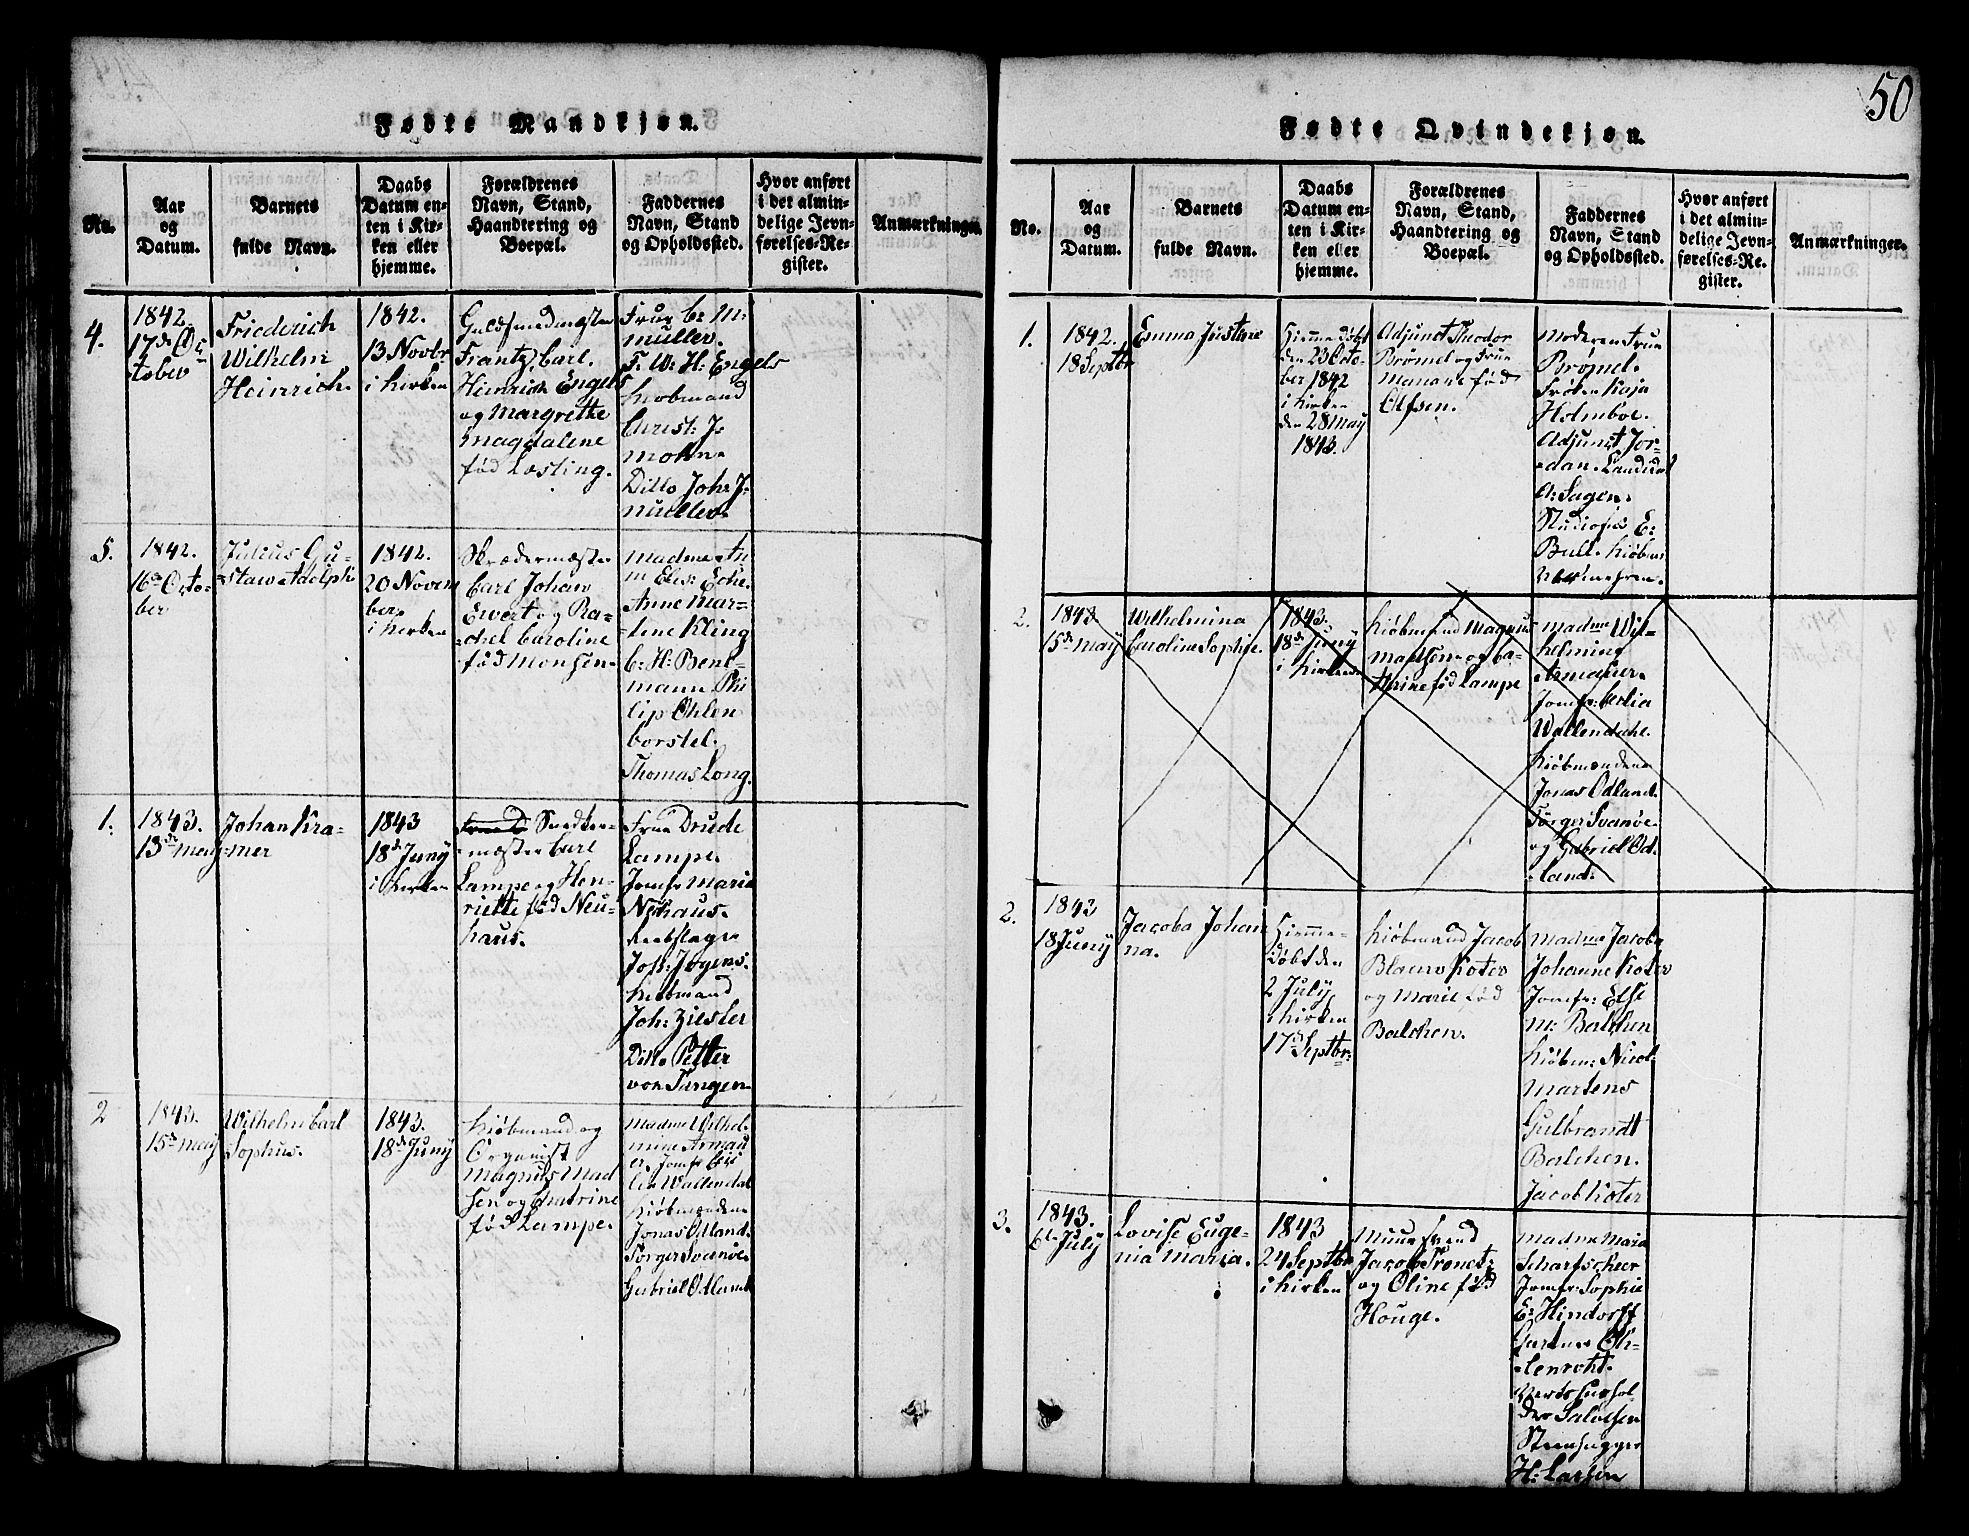 50
Fødte Mandkjøn.
No.
Aar
og
Datum.
Barnets
fulde Navn.
Daabs
Datum en-
ten i Kir-
ken eller
hjemme.
Forældrenes
Navn, Stand,
Haandtering og
Boepæl.
Faddernes
Navn, Stand
og Opholdssted.
Hvor anført
i det almin-
delige Jevn-
førelses-Re-
gister.
Anmærkninger.
4.
1842.
17de Oc
tober
Friederich
Wilhelm
Heinrich
1842.
13 Novbr
i Kirken
Guldsmedmester
Frantz Carl
Heinrich Engels
og Margrethe
Magdalene
fød Losting.
Frue C: M:
Müller.
F. W: H: Engels
Kiobmand
Christ: J:
Mohn
Ditto Joh: J:
Müller
5.
1842.
16de Octo-
ber
Julius Gu-
stav Adolph
1842.
20 Novem
ber
i Kirken
Skrædermæster
Carl Johan
Evert og Ra-
chel Caroline
fød Monsen
Madme An
m Elis: Eche.
Anne Mar-
tine Kling
C: H: Bene-
mann. Phi
lip Ohlen
borstel.
Thomas Long.
1.
1843.
13de May
Johan Kra-
mer
1843
18de Juny
i Kirken
Snedker-
mæster Carl
Lampe og Hen-
riette fød Neu-
haus.
Frue Drude
Lampe.
Jomfr Marie
Nyhaus.
Reebslager
Joh: Jogens.
Kiobmand
Joh: Ziesler
Ditto Petter
von Tangen
2
1843.
15de May
Wilhelm Carl
Sophus.
1843.
18de Juny
Kiøbmand og
Organist
Magnus Mad
sen og Chatrine
fød Lampe.
Madme Wilhel-
mine Armau
er. Jomfr Ceci
lia Wallendal
Kiøbmændene
Jonas Odland.
Törger Svanöe
Gabriel Odland
Fødte Qvindekjøn.
No.
Aar
og
Datum.
Barnets
fulde Navn.
Daabs
Datum en-
ten i Kir-
ken eller
hjemme.
Forældrenes
Navn, Stand,
Haandtering og
Boepæl.
Faddernes
Navn, Stand
og Opholdssted.
Hvor anført
i det almin-
delige Jevn-
førelses-Re-
gister.
Anmærkninger.
1.
1842.
18 Septbr
Emma Justine
Hiemmedöbt
den 23 Octo-
ber 1842
i Kirken
den 28 May
1843.
Adjunct Theodor
Brømel og Frue
fød
Olfsen.
Moderen Frue
Brømel.
Frøken Kaja
Holmboe.
Adjunct Jor-
dan. Landinsp
A: Sagen.
Studiosus E:
Bull. Kiöbm:
2.
1843
15de May
Wilhelmina
Caroline Sophie.
1843.
18de Juny
i Kirken
Kiöbmand Magnus
Madsen og Ca-
thrine fød Lampe
Madme Wil-
helmine
Armauer.
Jomfr: Cecilia
Wallendahl.
Kiöbmændene
Jonas Odland.
Törger Svanöe.
og Gabriel Od-
land.
2.
1843
18 Juny
Jacoba Johan
na.
Hiemme-
döbt den
2 July
i Kirken
17de Septbr:
Kiöbmand Jacob
Blauw Koter
og Marie fød
Balchen.
Madme Jacoba
Johanne Koter
Jomfr: Else
M: Balchen
Kiöbm: Nicol:
Martens
Gulbrandt
Balchen.
Jacob Koter
3.
1843.
6te July
Lovise Euge-
nia Maria.
1843
24 Septbr
i Kirken
Muursvend
Jacob Tronet:
og Oline fød
Houge.
Madme Maria
Scharfscheer
Jomfr: Sophie
E: Hindorff
Gartner Oh-
lenroht.
Vertshushol
der Salvesen
Steenhugger
H: Larsen